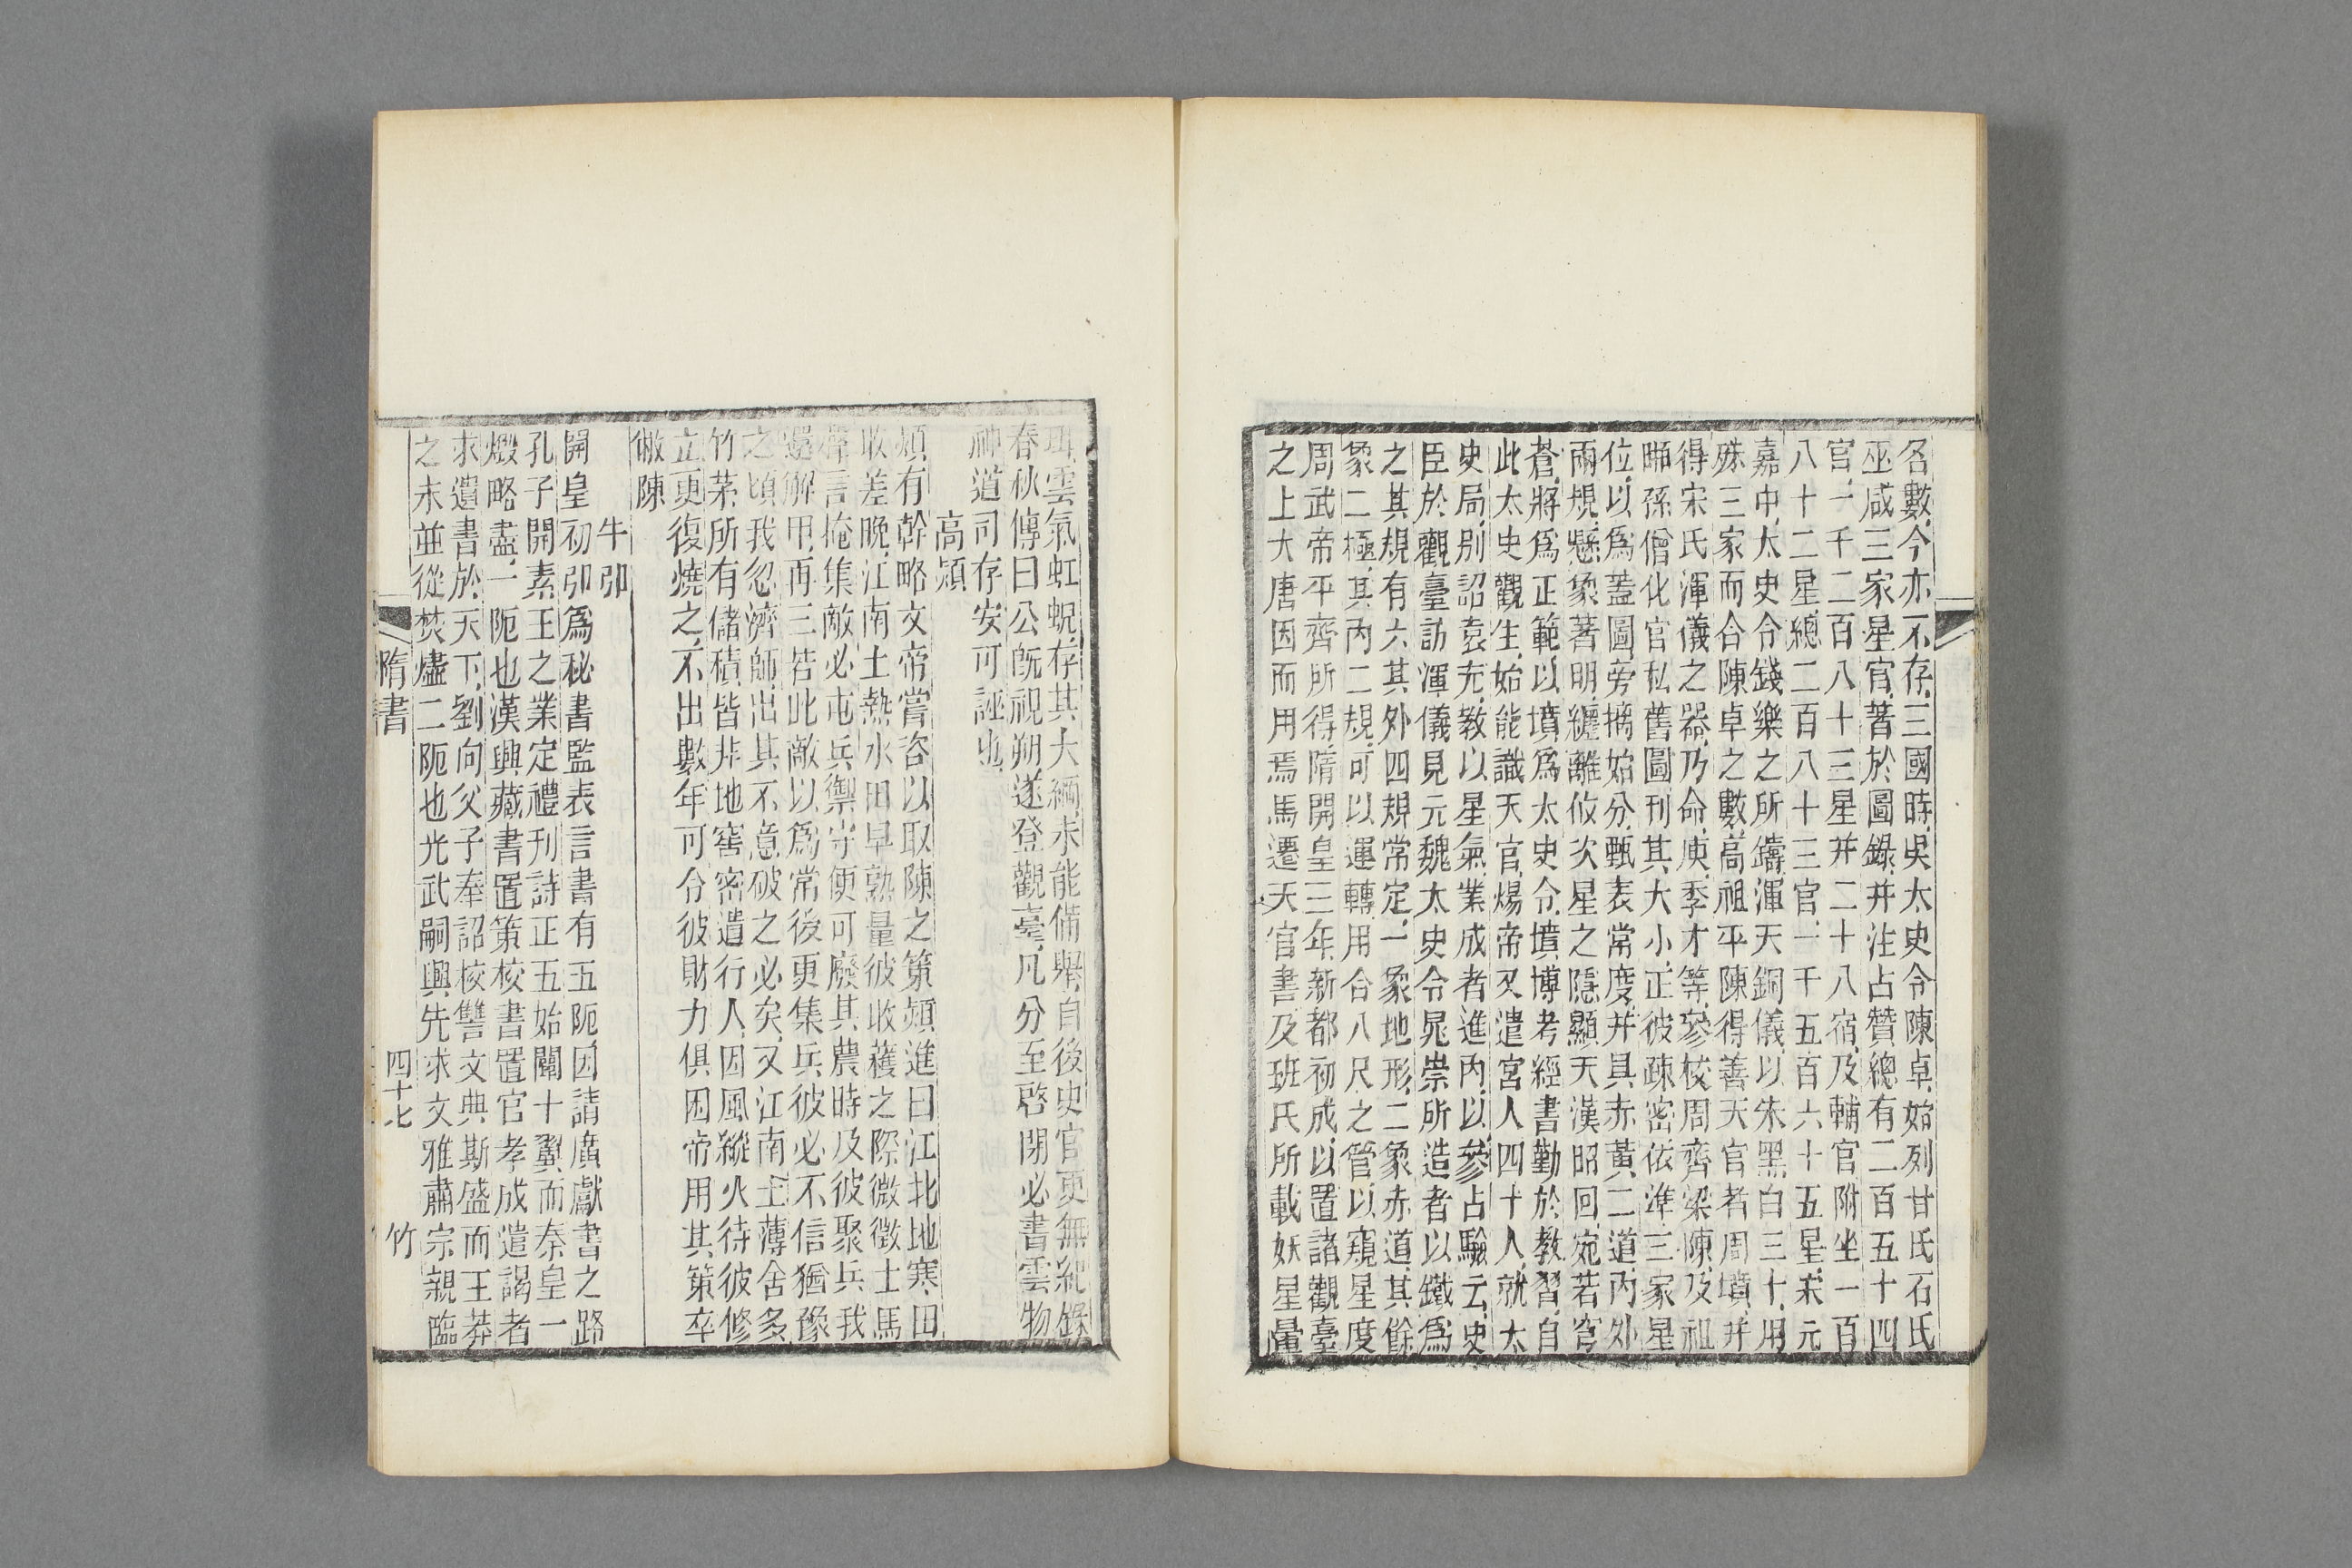 名數今亦不存三國時吳太史令陳卓始列甘氏石氏
巫咸三家星官著於圖錄并注占贊總有二百五十四
官一千二百八十三星并二十八宿及輔官附坐一百
八十二星總二百八十三官一千五百六十五星宋元
嘉中太史令錢樂之所鑄渾天銅儀以朱黑白三十用
殊三家而合陳卓之數高祖平陳得善天官者周墳并
得宋氏渾儀之器乃命庾季才等參校周齊梁陳及祖
暅孫僧化官私舊圖刊其大小正彼疎密依準三家星
位以爲蓋圖旁摛始分甄表常度并具赤黃二道內外
兩規懸象著明纏離攸次星之隱顯天漢昭回宛若穹
蒼將爲正範以墳爲太史令墳博考經書勤於教習自
此太史觀生始能識天官煬帝又遣宮人四十人就太
史局別詔袁充教以星氣業成者進內以參占驗云史
臣於觀臺訪渾儀見元魏太史令晁崇所造者以鐵爲
之其規有六其外四規常定一象地形二象赤道其餘
象二極其內二規可以運轉用合八尺之管以窺星度
周武帝平齊所得隋開皇三年新都初成以置諸觀臺
之上大唐因而用焉馬遷天官書及班氏所載妖星暈
珥雲氣虹蜺存其大綱未能備舉自後史官更無紀錄
春秋傳曰公旣視朔遂登觀臺凡分至啓閉必書雲物
神道司存安可誣也
高熲
熲有幹略文帝嘗咨以取陳之策熲進曰江北地寒田
收差晚江南土熱水田早熟量彼收穫之際微徵士馬
聲言掩集敵必屯兵禦守便可廢其農時及彼聚兵我
還解甲再三若此敵以爲常後更集兵彼必不信猶豫
之頃我忽濟師出其不意破之必矣又江南土薄舍多
竹茅所有儲積皆非地窖密遣行人因風縱火待彼修
立更復燒之不出數年可令彼財力俱困帝用其策卒
敝陳
牛弘
開皇初弘爲秘書監表言書有五阨因請廣獻書之路
孔子開素王之業定禮刊詩正五始闡十翼而秦皇一
燬略盡一阨也漢興藏書置策校書置官孝成遣謁者
求遺書於天下劉向父子奉詔校讐文典斯盛而王莽
之末並從焚燼二阨也光武嗣興先求文雅肅宗親臨
隋書 四十七 竹